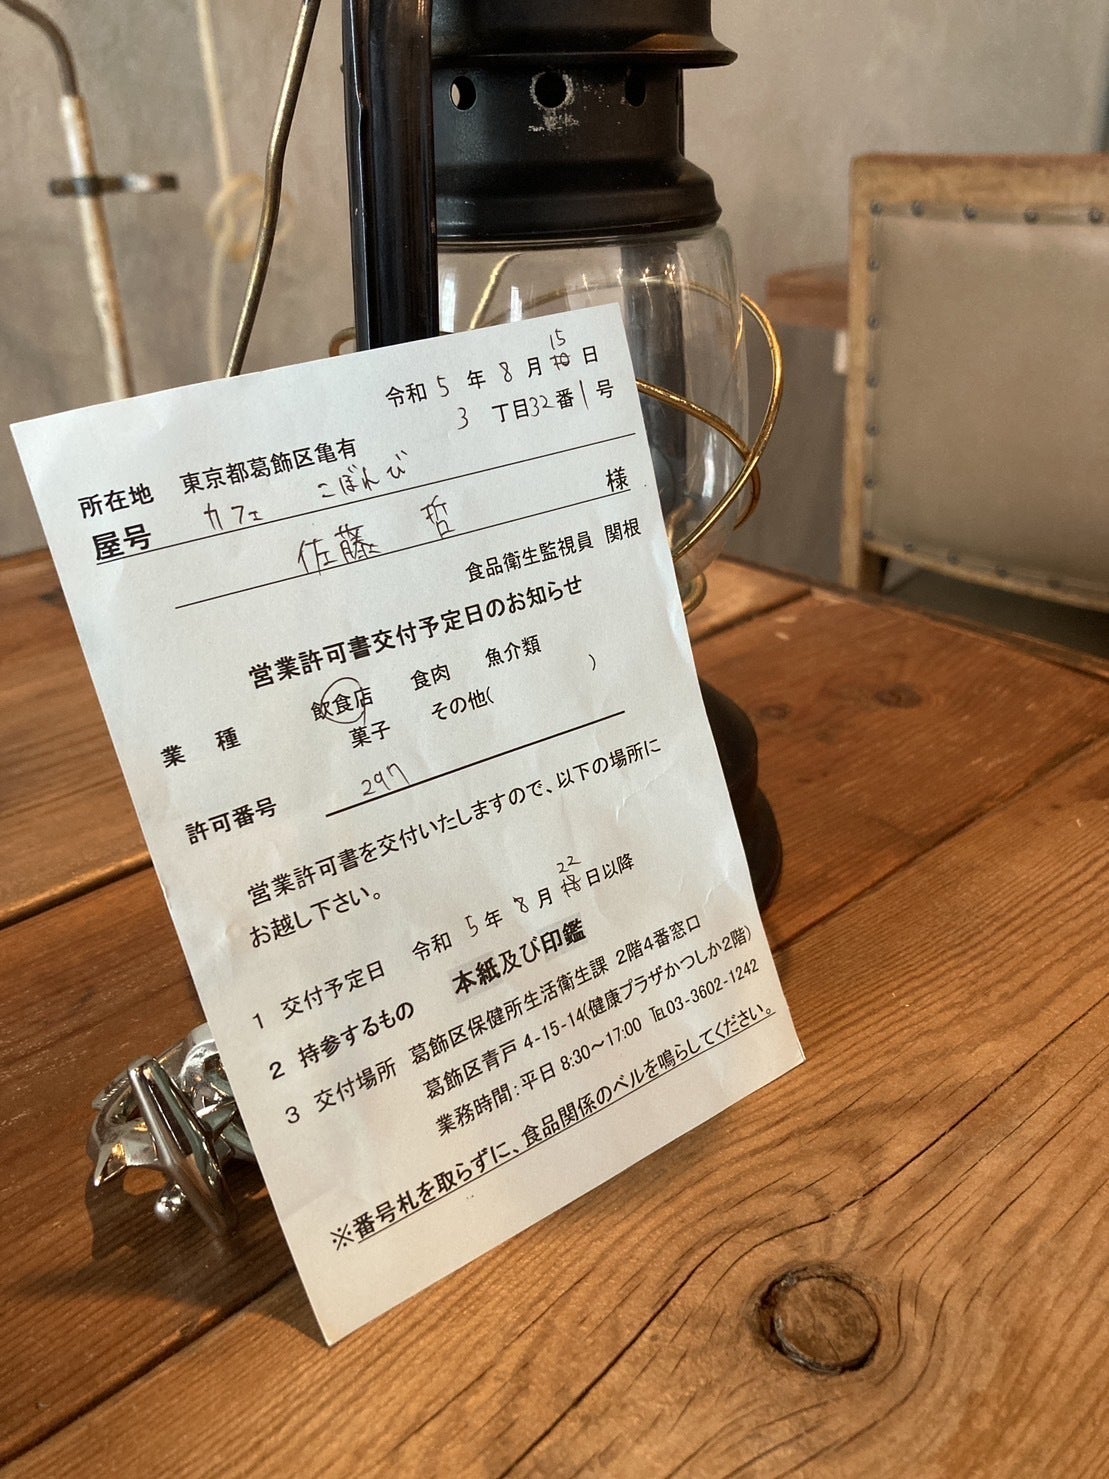 令和 5 年 8 月 15 日
3 丁目32番1号
所在地 東京都葛飾区亀有
屋号 カフェ こぼれび
佐藤 哲 様
食品衛生監視員 関根
営業許可書交付予定日のお知らせ
業 種 飲食店 食肉 魚介類
菓子 その他( )
許可番号 297
営業許可書を交付いたしますので、以下の場所に
お越し下さい。
1 交付予定日 令和 5 年 8 月 22 日以降
2 持参するもの 本紙及び印鑑
3 交付場所 葛飾区保健所生活衛生課 2階4番窓口
葛飾区青戸 4-15-14(健康プラザかつしか2階)
業務時間:平日 8:30~17:00 ℡03-3602-1242
※番号札を取らずに、食品関係のベルを鳴らしてください。